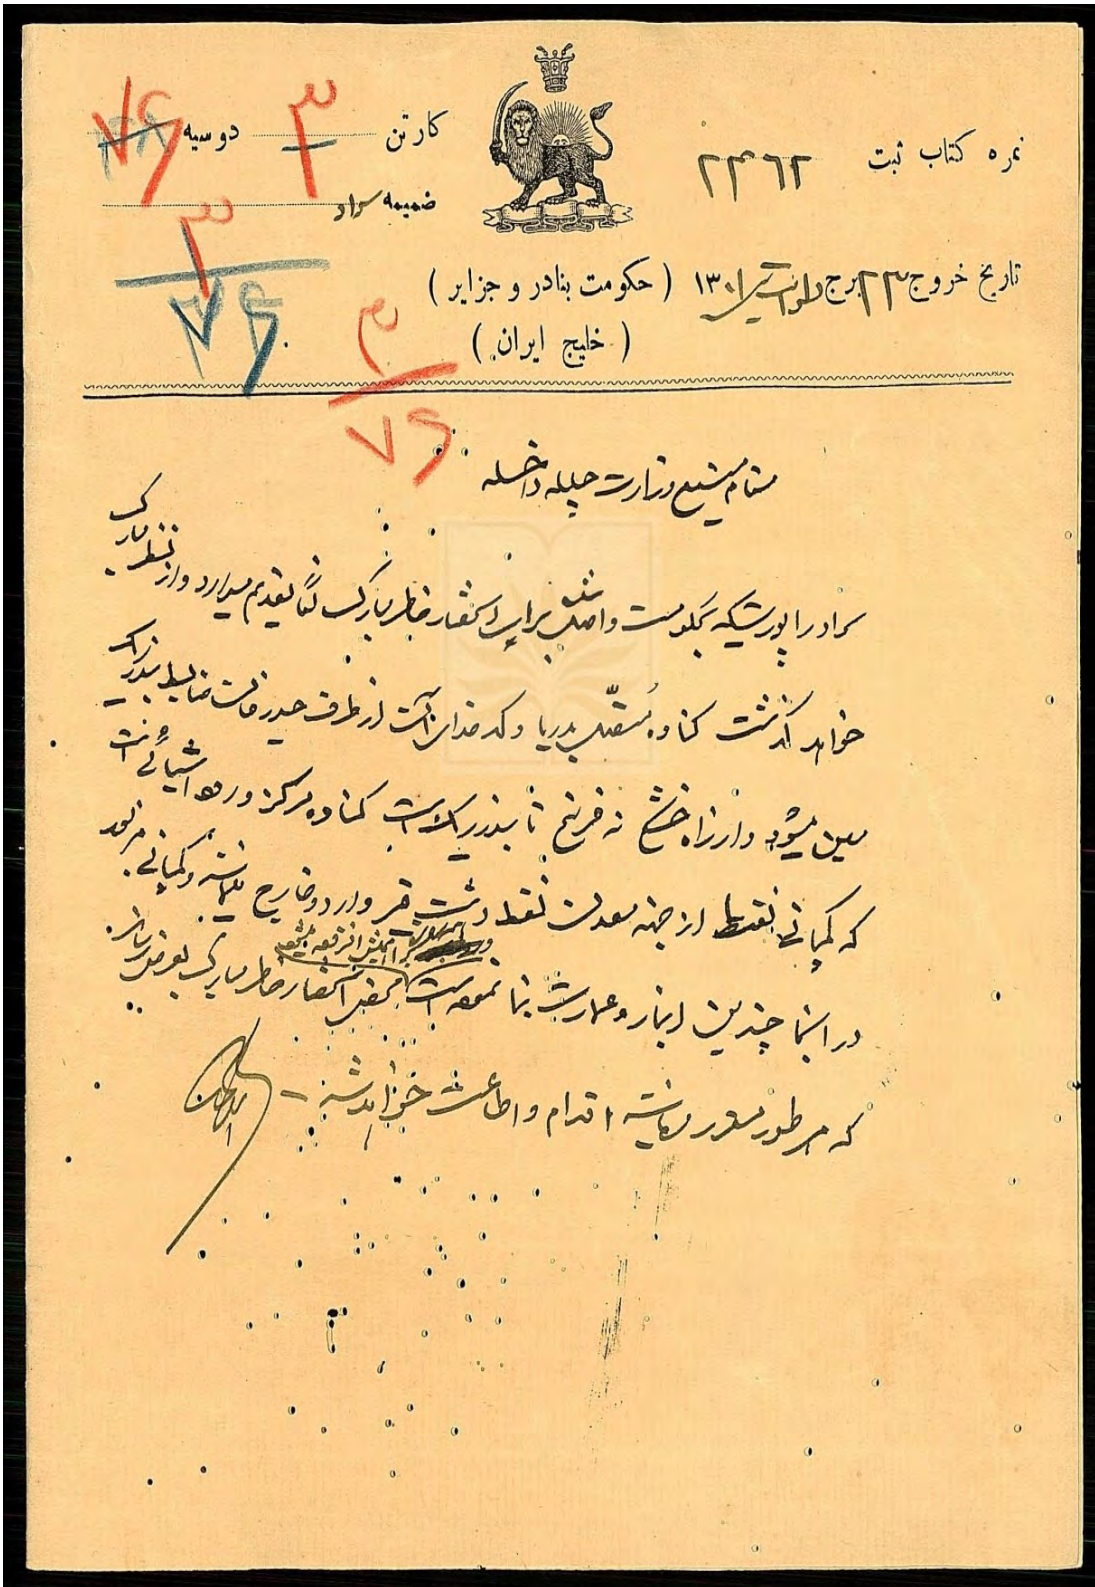 نمره کتاب ثبت ۲۴۶۲
کارتن ۳ دوسیه ۷۶
ضمیمه سواد
تاریخ خروج ۲۳ برج ۱۳۰۱ ( حکومت بنادر و جزایر )
( خلیج ایران )
۳
۷۶
۳
۷۶
مقام منیع وزارت جلیله داخله
سواد راپورتیکه بحکومت واصل شده برای استحضار خاطر مبارک لفاً تقدیم میدارد و از نظر مبارک
خواهد گذشت کناوه متصل بدریا و کدخدای آنجا از طرف حیدر خان ضابط بندر ریک
معین میشود و از راه خشکی نه فرسخ تا بندر ریک است کناوه مرکز ورود اشیائی است
که کمپانی نفط از جهة معدن نفط وارد و خارج و کمپانی مزبور
در آنجا چندین انبار و عمارت بنا نموده است محض استحضار خاطر مبارک بعرض رسانید
که هر طور مقرر فرمایند اقدام و اطاعت خواهد شد